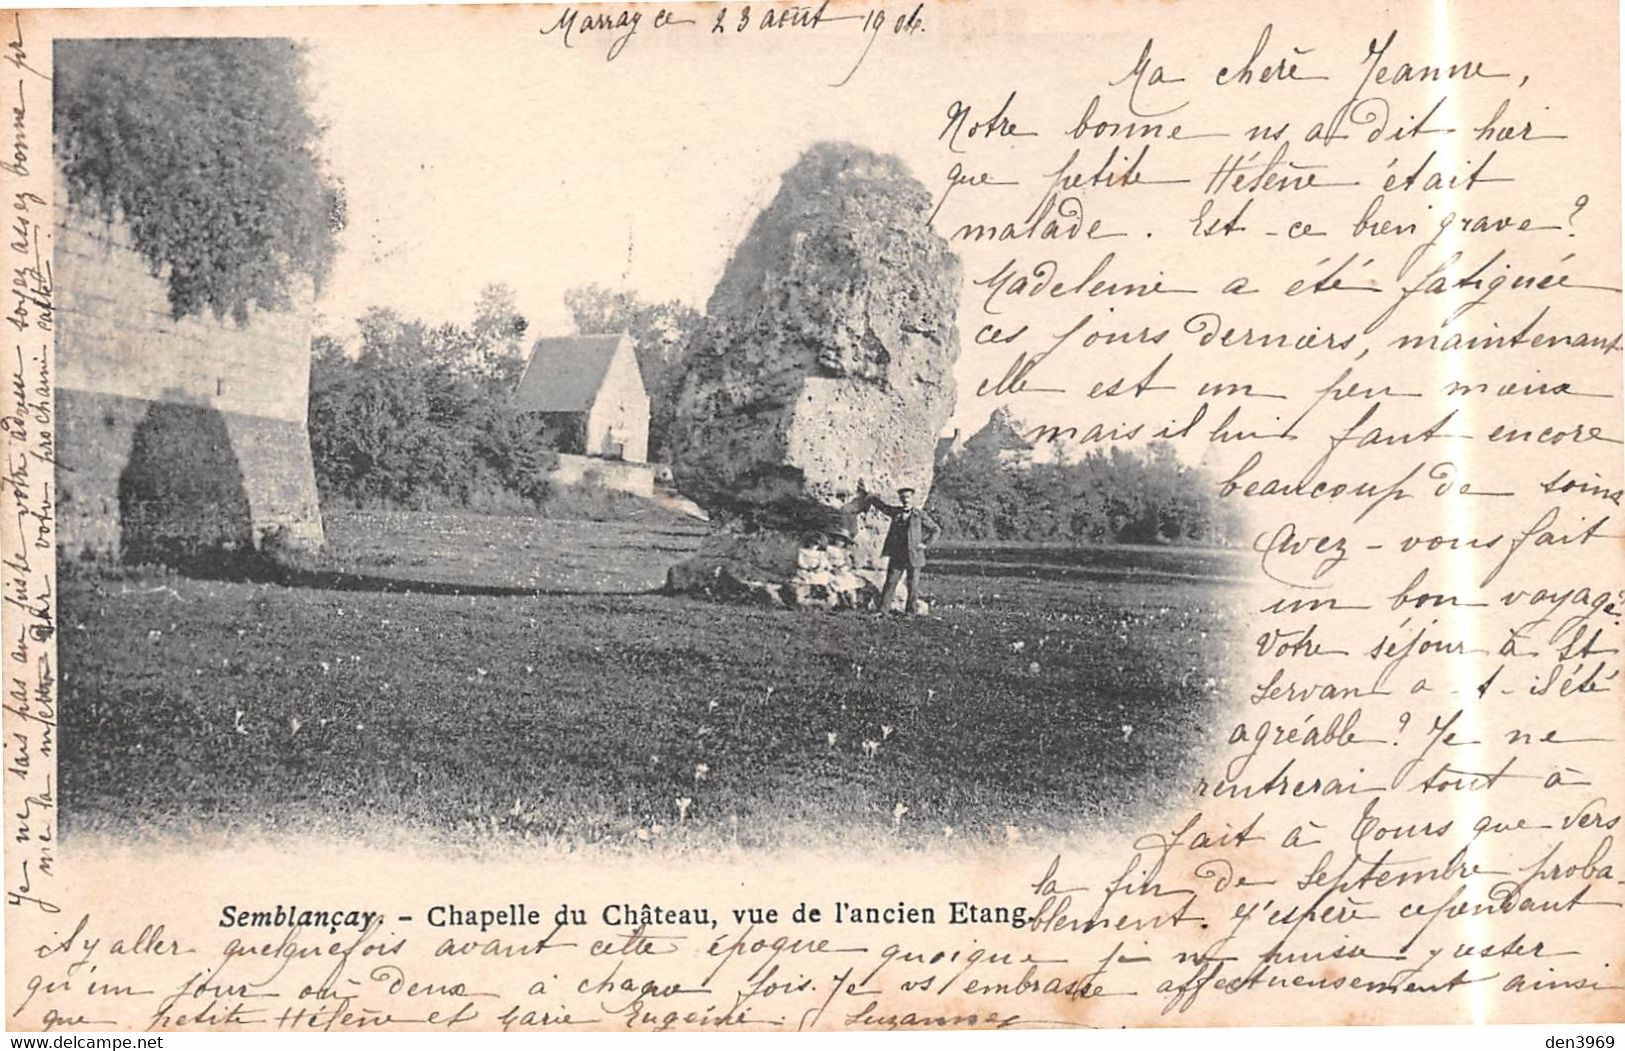 Marray ce 23 août 1904.
Ma chère Jeanne,
Notre bonne ns a dit hier
que petite Hélène était
malade. Est-ce bien grave?
Madeleine a été fatiguée
ces jours derniers, maintenant
elle est un peu mieux
mais il lui faut encore
beaucoup de soins
Avez-vous fait
un bon voyage?
Votre séjour à St
Servan a-t-il été
agréable? Je ne
rentrerai tout à
fait à Tours que vers
la fin de Septembre proba-
blement. J'espère cependant
y aller quelquefois avant cette époque quoique je ne puisse y rester
qu'un jour ou deux à chaque fois. Je vs embrasse affectueusement ainsi
que petite Hélène et Marie Eugénie. Suzanne
Je ne sais pas au juste votre adresse soyez assez bonne pr
me la mettre sur votre prochaine carte.
Semblançay. - Chapelle du Château, vue de l'ancien Etang.
delcampe.net
den3969